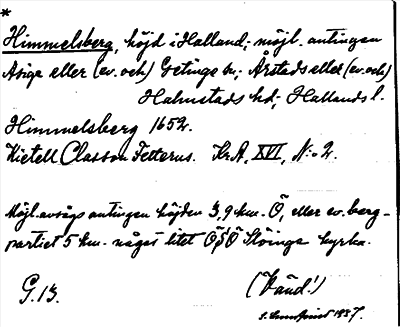 *
Himmelsberg, höjd i Halland; möjl. antingen
Asige eller (ev. och) Getinge sn; Årstads eller (ev. och)
Halmstads hd; Hallands l.
Himmelsberg 1652.
Kietell Classon Felterus. Kr.A, XVI, N:o 2.
Möjl. avses antingen höjden 3,9 km. Ö, eller ev. berg-
partiet 5 km. något litet ÖSÖ Slöinge kyrka.
G. 13.
(Känd!)
S. Lundqvist 1937.